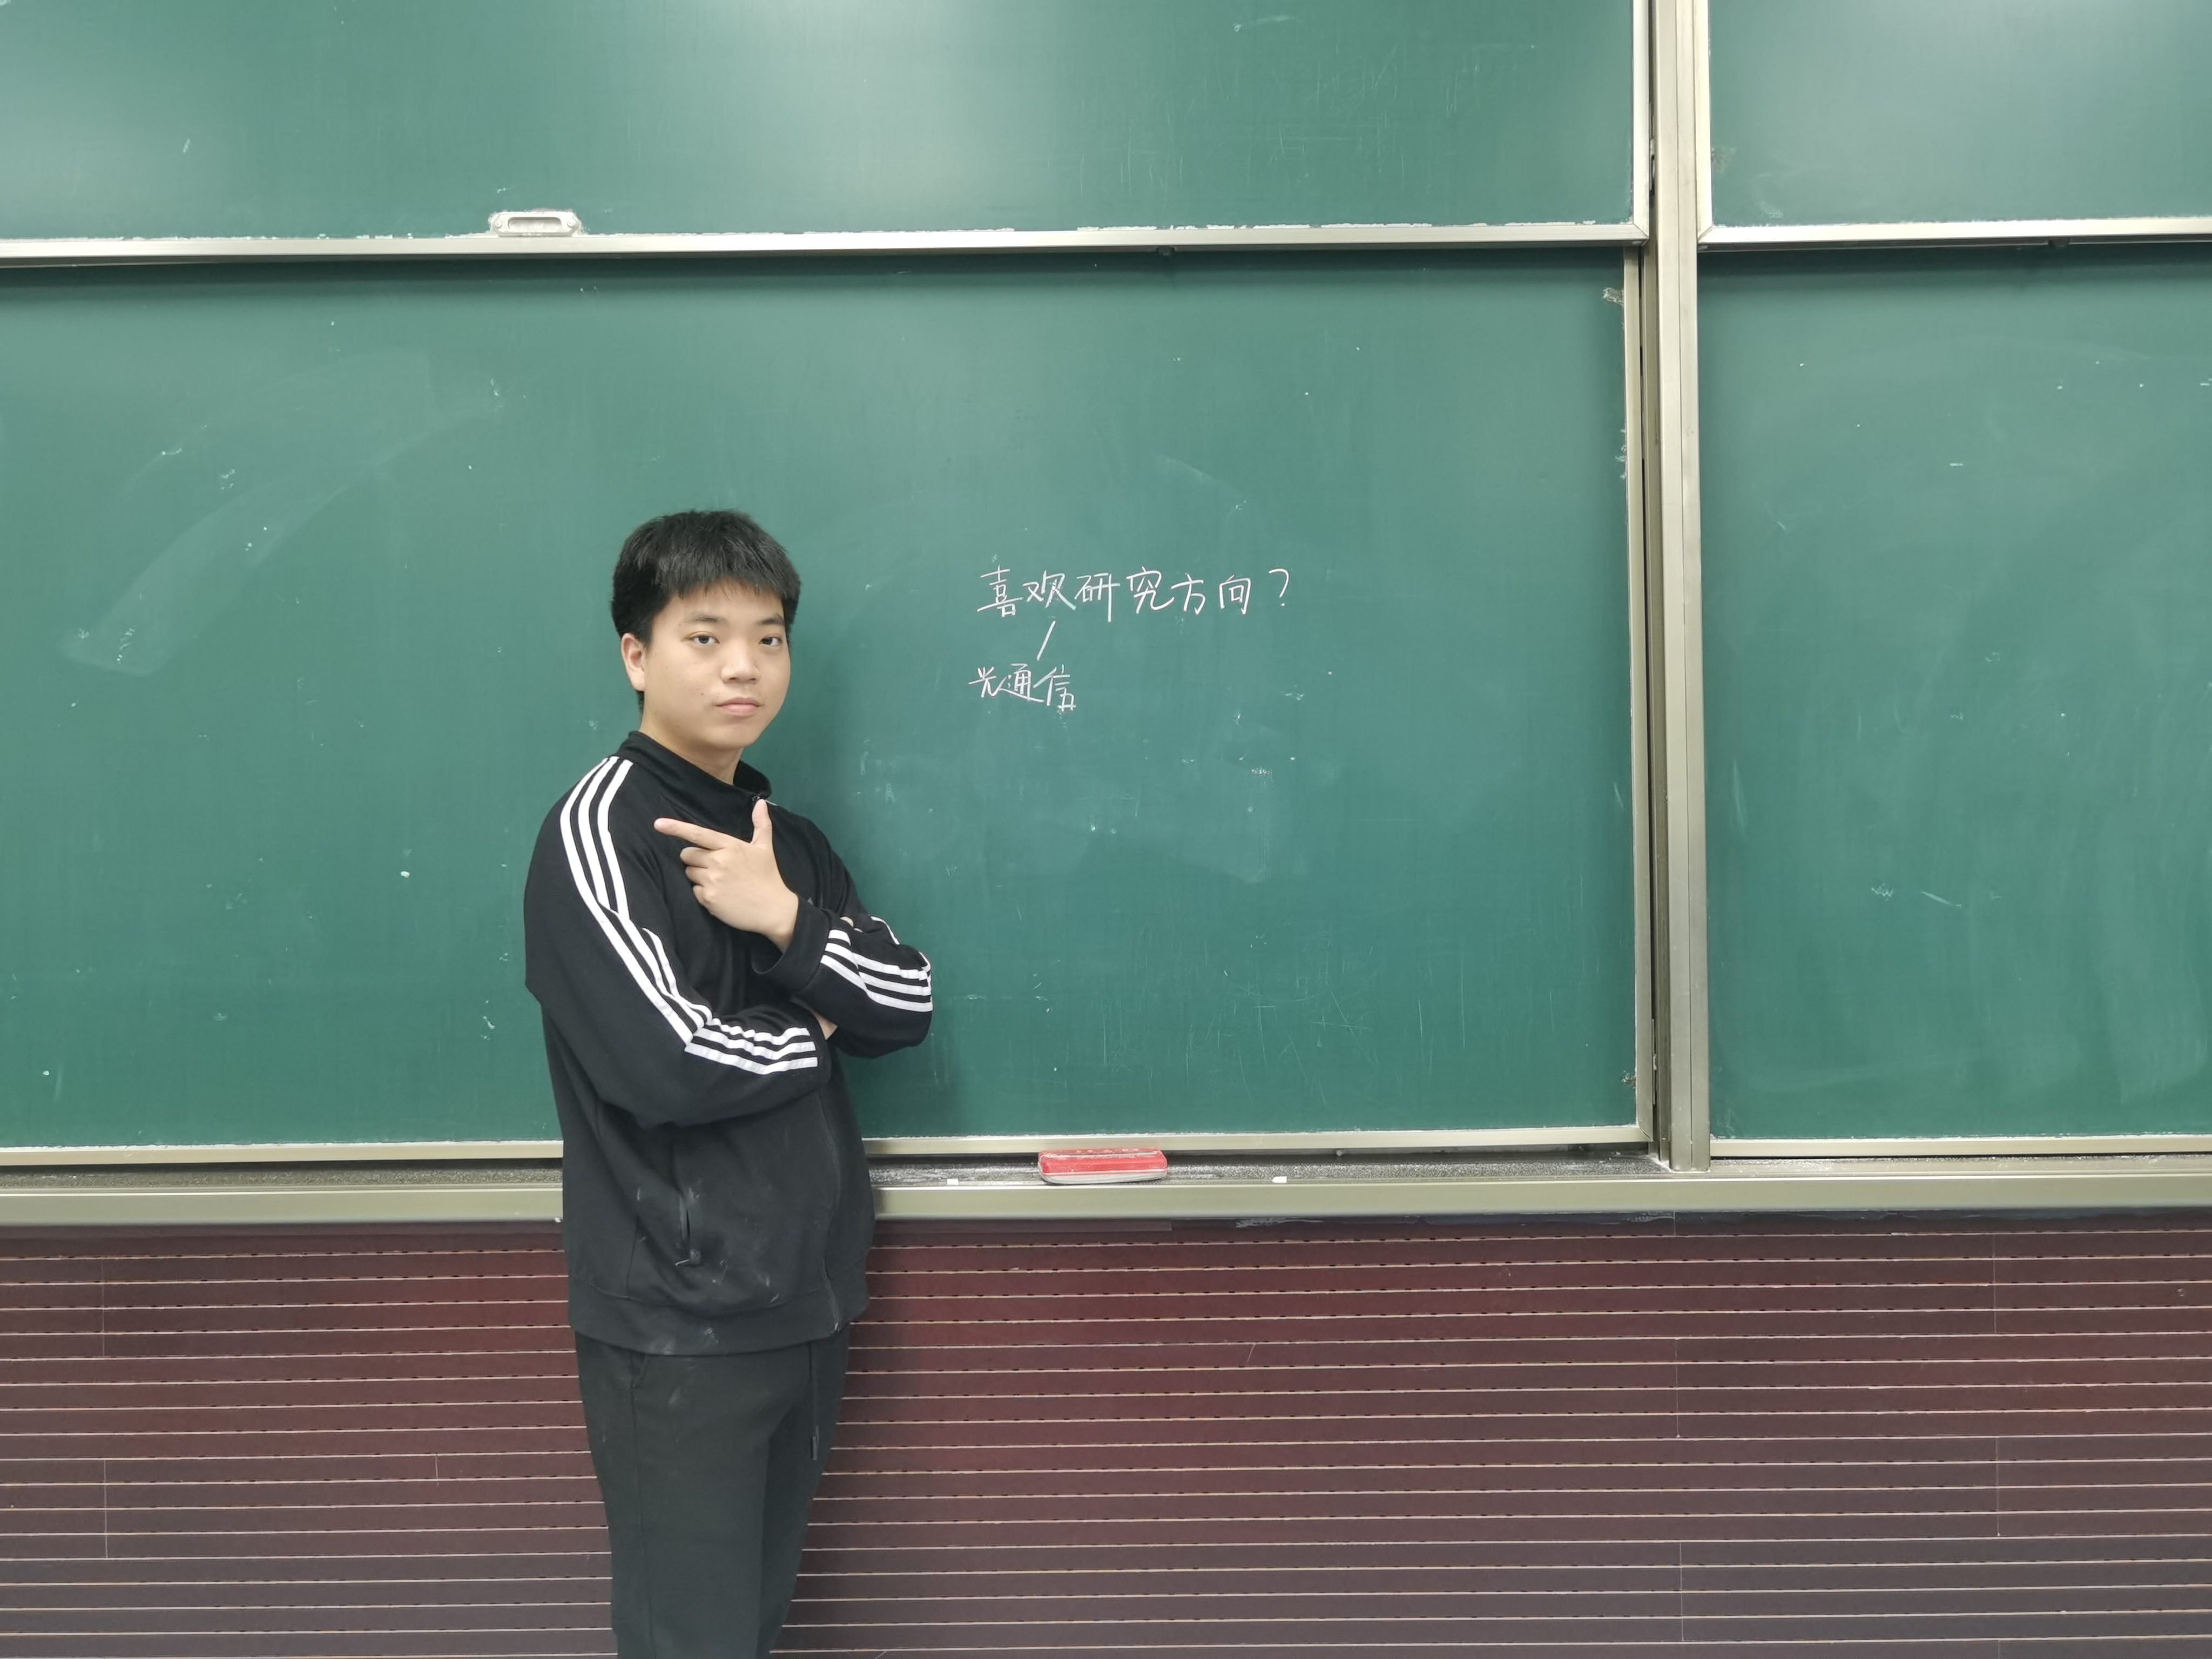 喜欢研究方向？
光通信